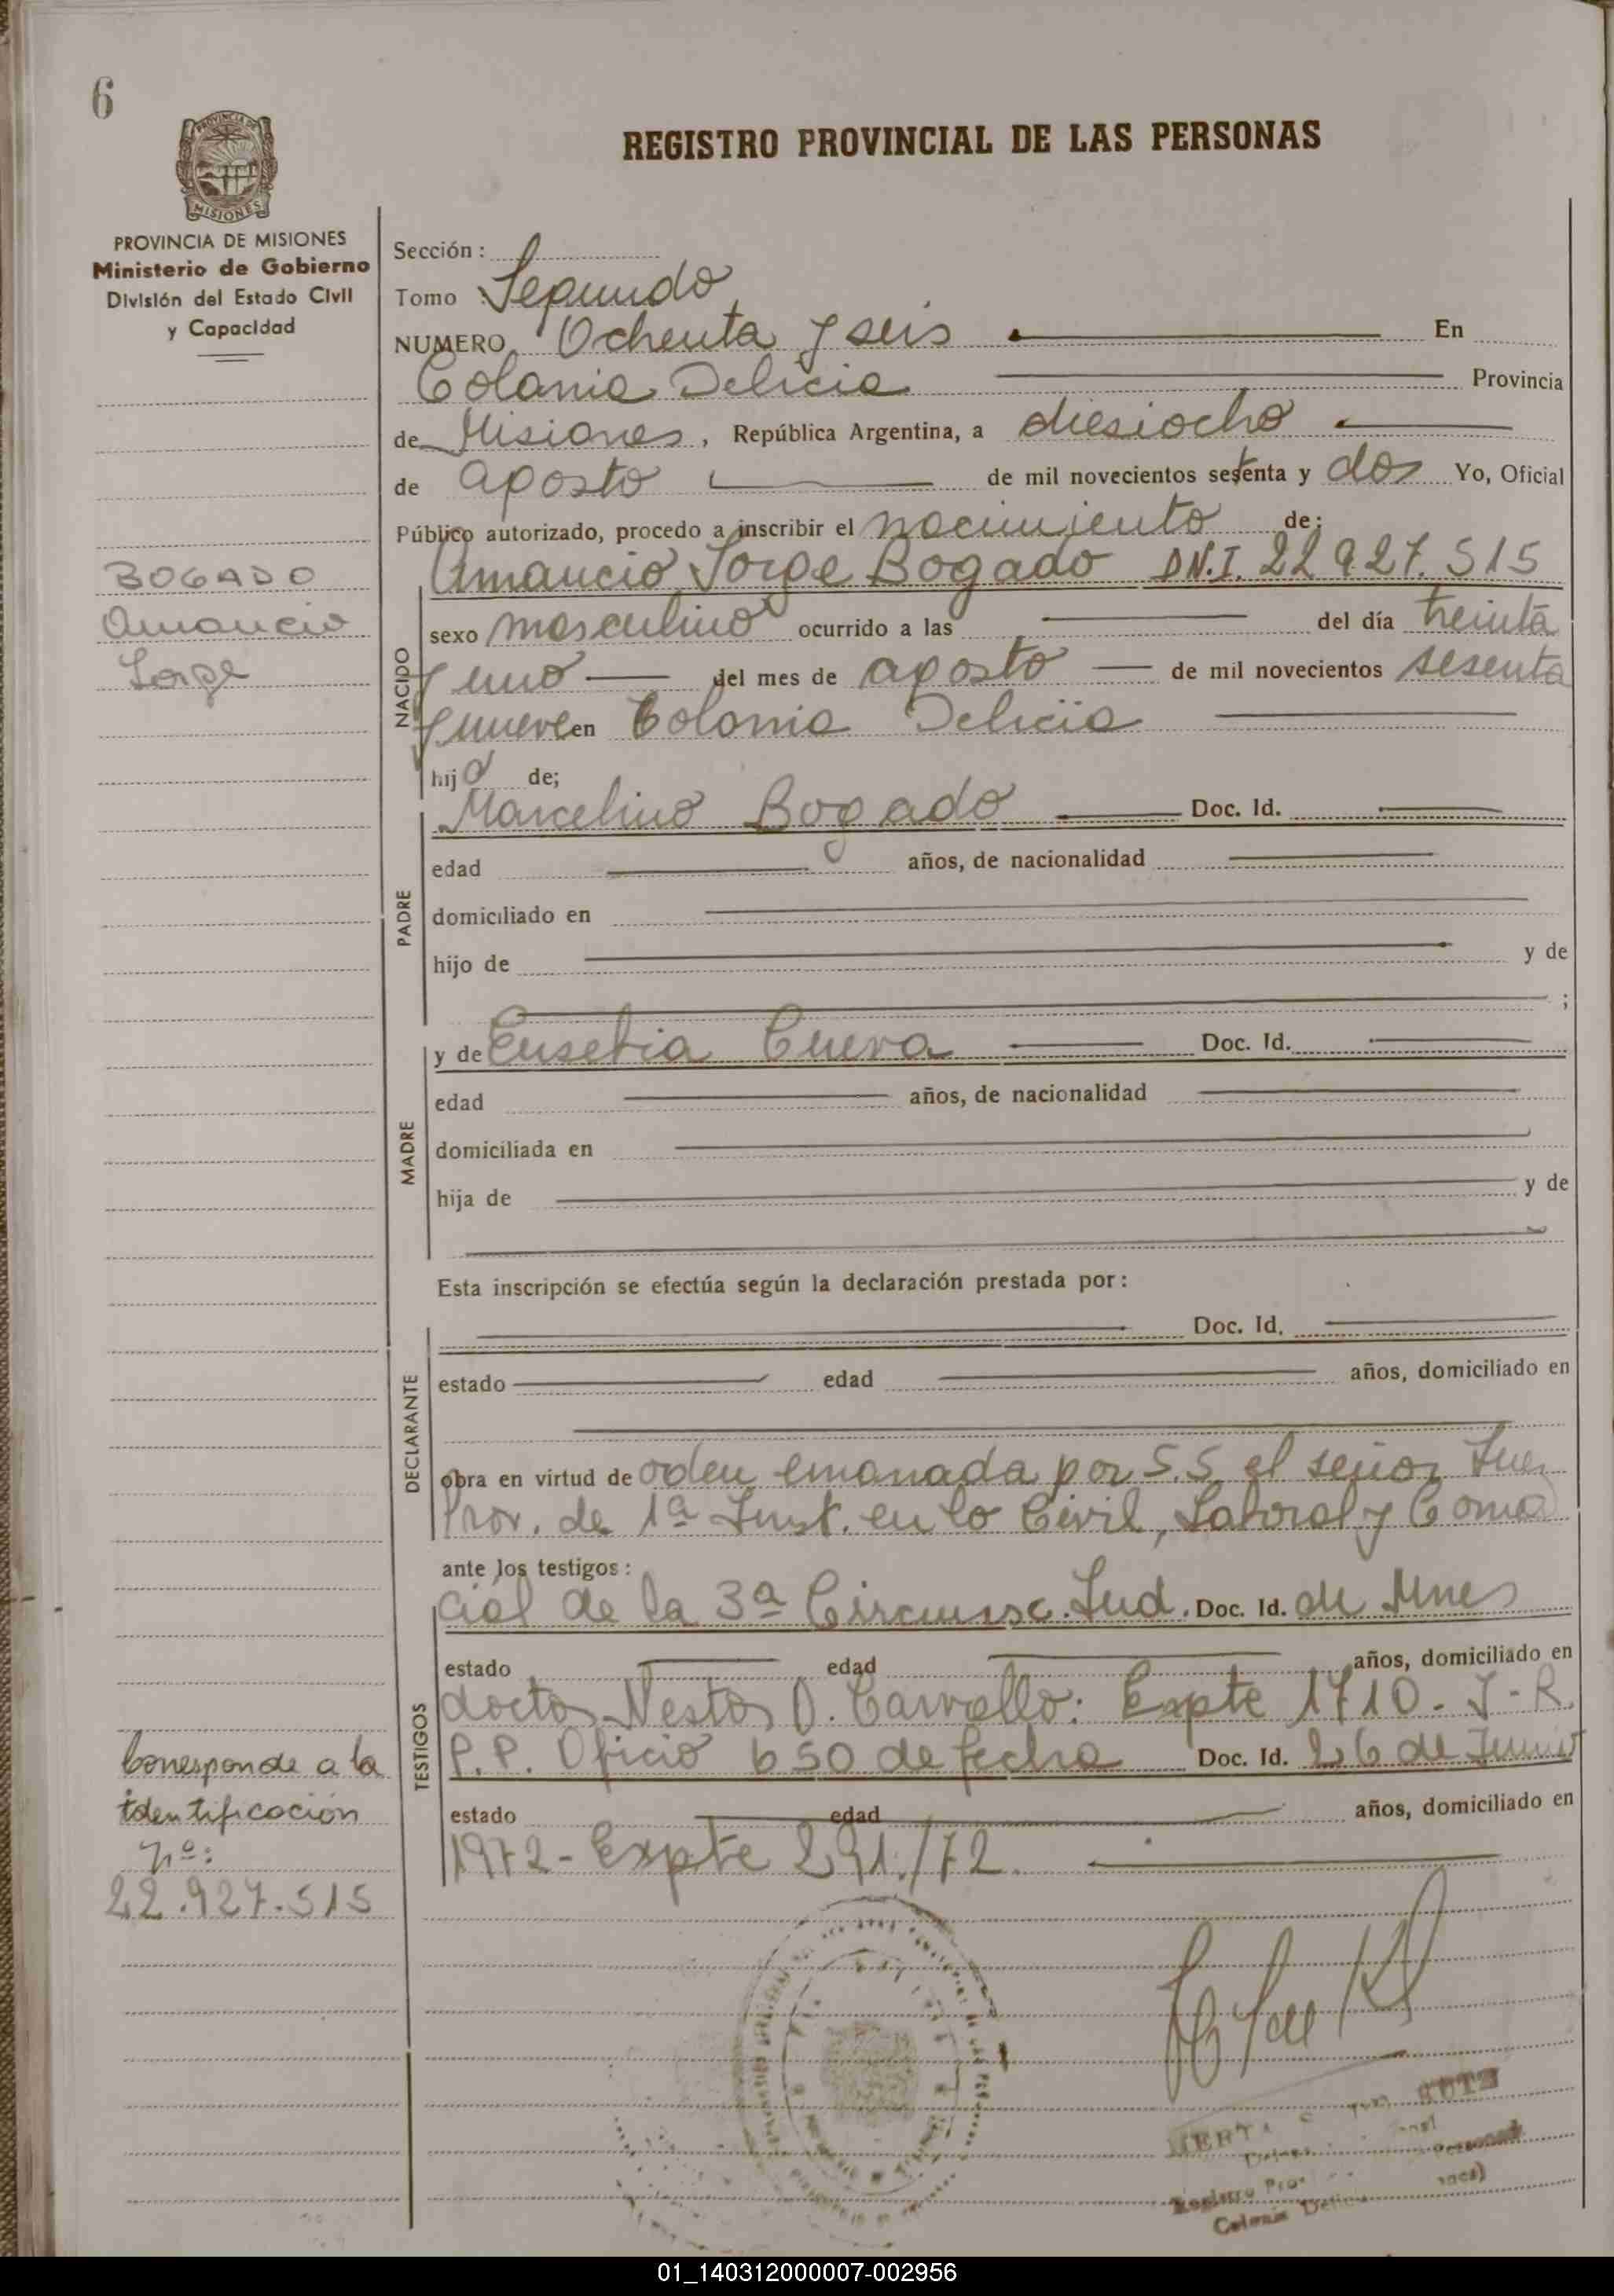 6
PROVINCIA DE
MISIONES
REGISTRO PROVINCIAL DE LAS PERSONAS
PROVINCIA DE MISIONES
Ministerio de Gobierno
División del Estado Civil
y Capacidad
Sección :
Tomo Segundo
NUMERO Ochenta y seis En
Colonia Delicia Provincia
de Misiones, República Argentina, a diesiocho
de agosto de mil novecientos setenta y dos Yo, Oficial
Público autorizado, procedo a inscribir el nacimiento de:
Amancio Jorge Bogado DN.I. 22.927.515
BOGADO
Amancio
Jorge
NACIDO
sexo masculino ocurrido a las del día treinta
y uno del mes de agosto de mil novecientos sesenta
y nueve en Colonia Delicia
hijo de;
PADRE
Marcelino Bogado Doc. Id.
edad años, de nacionalidad
domiciliado en
hijo de y de
;
MADRE
y de Eusebia Cueva Doc. Id.
edad años, de nacionalidad
domiciliada en
hija de y de
Esta inscripción se efectúa según la declaración prestada por:
DECLARANTE
Doc. Id.
estado edad años, domiciliado en
obra en virtud de orden emanada por S.S. el señor Juez
Prov. de 1ª Inst. en lo Civil, Laboral y Comer
ante los testigos:
TESTIGOS
cial de la 3ª Circunsc. Jud. Doc. Id. de Mnes
estado edad años, domiciliado en
doctor Nestor O. Carvallo: Expte 1710- J-R.
P.P. Oficio 650 de fecha Doc. Id. 26 de Junio
estado edad años, domiciliado en
1972- Expte 291./72.
Corresponde a la
identificación
nº:
22.927.515
Registro
Colonia
01_140312000007-002956